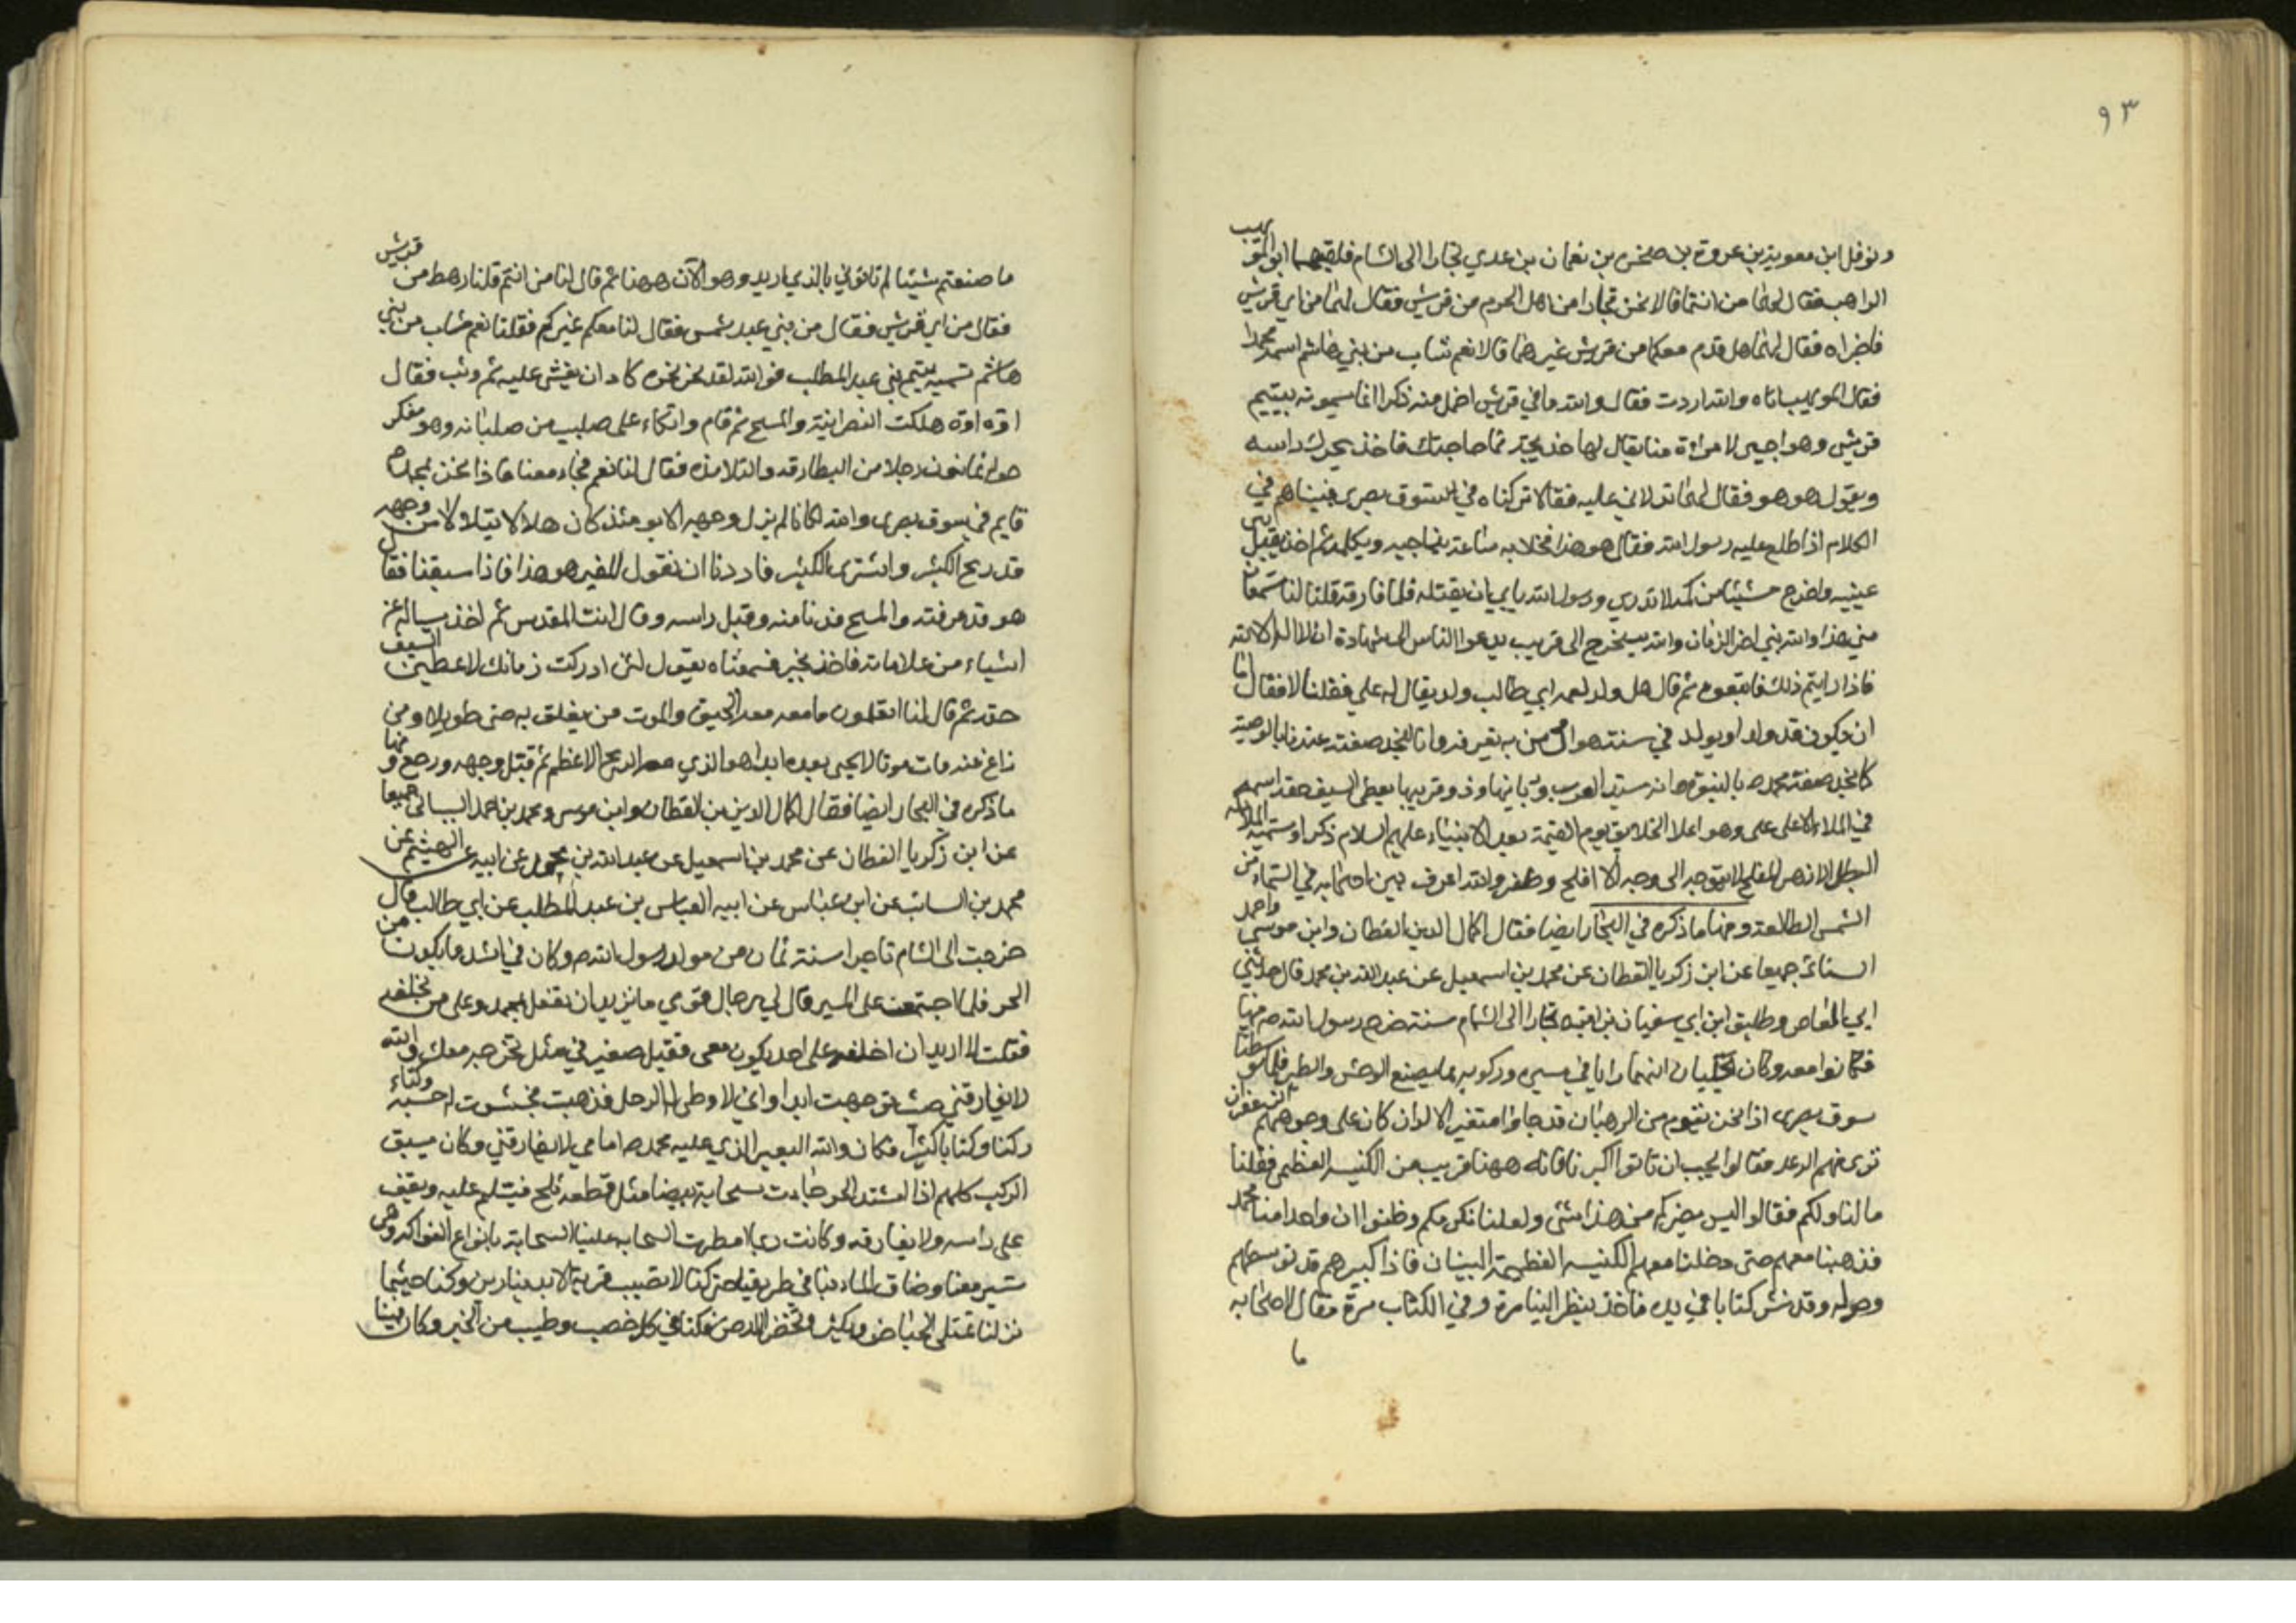 ٩٣
ونوفل ابن معوية بن عروة بن صخر بن نعمان بن عدي تجارا الى الشام فلقيهما ابو المويهب
الراهب فقال لهما من انتما قالا نحن تجار من اهل الحرم من قريش فقال لهما من اي قريش
فاخبراه فقال لهما هل قدم معكما من قريش غيركما قالا نعم شاب من بني هاشم اسمه محمد
فقال ابو المويهب اياه والله اردت فقالا والله ما في قريش اخمل منه ذكرا انما يسمونه بيتيم
قريش وهو اجير لامراة منا يقال لها خديجة فما حاجتك فاخذ يحرك راسه
ويقول هو هو فقال لهما تدلاني عليه فقالا تركناه في سوق بصرى فبيناهم في
الكلام اذ اطلع عليه رسول الله فقال هو هذا فخلا به ساعة يناجيه ويكلمه ثم اخذ يقبل بين
عينيه واخرج شيئا من كمه لا ندري ورسول الله يابى ان يقبله فلما فارقه قلنا لنا تسمعان
مني هذا والله نبي اخر الزمان والله سيخرج الى قريب يدعوا الناس الى شهادة ان لا اله الا الله
فاذا رايتم ذلك فاتبعوه ثم قال هل ولد لعمه ابي طالب ولد يقال له علي فقلنا لا فقال اما
ان يكون قد ولد او يولد في سنته هو اول من به نعرفه وانا لنجد صفته عندنا بالوصية
كما نجد صفة محمد ص بالنبوة وانه سيد العرب وربانيها وذو قرنيها يعطي السيف حقه اسمه
في الملاء الاعلى علي وهو اعلا الخلايق يوم القيمة بعد الانبياء عليهم السلام ذكرا وتسميه الملائكه
البطل الازهر المفلح لا يتوجه الى وجه الا افلح وظفر والله اعرف بين اصحابه في السماء من
الشمس الطالعة ومنها ما ذكره في البحار ايضا فقال اكمال الدين القطان وابن موسى واحمد
السناني جميعا عن ابن زكريا القطان عن محمد بن اسمعيل عن عبد الله بن محمد قال حدثني
ابي العاص وطليق ابن ابي سفيان بن امية تجارا الى الشام سنة خرج رسول الله ص فيها
فكانوا معه وكان يحكيان انهما رايا في مسيره وركوبه مما يصنع الوحش والطير فلما توسطنا
سوق بصرى اذا نحن بقوم من الرهبان قد جاؤا متغير الالوان كان على وجوههم الزعفران
نرى منهم الرعدة فقالوا نحب ان تاتوا اكبرنا فانه ههنا قريب من الكنيسه العظمى فقلنا
ما لنا ولكم فقالوا ليس يضركم من هذا شئ ولعلنا نكرمكم وظنوا ان واحدا منا محمد
فذهبنا معهم حتى دخلنا معهم الكنيسه العظيمة البنيان فاذا كبيرهم قد توسطهم
وحوله وقد نشر كتابا في يده فاخذ ينظر الينا مرة وفي الكتاب مرة فقال لاصحابه
ما
ما صنعتم شيئا لم تاتوني بالذي اريد وهو الآن ههنا ثم قال لنا من انتم قلنا رهط من قريش
فقال من اي قريش فقال من بني عبد شمس فقال لنا معكم غيركم فقلنا نعم شاب من بني
هاشم نسميه يتيم بني عبد المطلب فوالله لقد نخر نخرة كاد ان يغشى عليه ثم وثب فقال
اوّه اوّه هلكت النصرانية والمسيح ثم قام واتكاء على صليب من صلبانه وهو مفكر
حوله ثمانون رجلا من البطارقه والتلامذه فقال لنا نعم فجاء معنا فاذا نحن بمحمد ص
قايم في سوق بصرى والله لكانا لم نر وجهه الا يومئذ كان هلالا يتلالا من وجهه
قد ربح الكثير واشترى الكثير فاردنا ان نقول للقس هو هذا فاذا سبقنا فقال
هو قد عرفته والمسيح فدنا منه وقبل راسه وقال انت المقدس ثم اخذ يساله عن
اشياء من علاماته فاخذ يخبره فسمعناه يقول لئن ادركت زمانك لاعطين السيف
حقه ثم قال لنا اتعلمون ما معه معه الحيوة والموت من يعلق به حيى طويلا ومن
زاغ عنه مات موتا لا يحيى بعده ابدا هو الذي معه الربح الاعظم ثم قبل وجهه ورجع و منها
ما ذكره في البحار ايضا فقال اكمال الدين بن القطان وابن موسى ومحمد بن احمد السناني جميعا
عن ابن زكريا القطان عن محمد بن اسمعيل عن عبد الله بن محمد عن ابيه عن الهيثم عن
محمد بن السائب عن ابن عباس عن ابيه العباس بن عبد المطلب عن ابي طالب قال
خرجت الى الشام تاجرا سنة ثمان من مولد رسول الله ص وكان في اشد ما يكون من
الحر فلما اجتمعت على المسير قال لي رجال قومي ما تريد ان تفعل بمحمد وعلى من تخلفه
فقلت لا اريد ان اخلفه على احد يكون معي فقيل صغير في مثل تخرجه معك والله
لا يفارقني حيث توجهت ابدا واني لاوطى له الرحل فذهبت فحشوت له حشية ولتاء
ركنا وكتابا كثيرا فكان والله البعير الذي عليه محمد ص امامي لا يفارقني وكان يسبق
الركب كلهم اذا اشتد الحر جاءت سحابة بيضا مثل قطعة ثلج فتسلم عليه وتقف
على راسه ولا يفارقه وكانت ربما مطرت السحابه علينا السحابة بانواع الفواكه وهى
تسير معنا وضاق الماء بنا في طريقنا حتى كنا لا نصيب قربة الا بدينارين وكنا حيثما
نزلنا تمتلى الحياض ويكثر وتخضر الارض فكنا في كل خصب وطيب من الخير وكان فينا